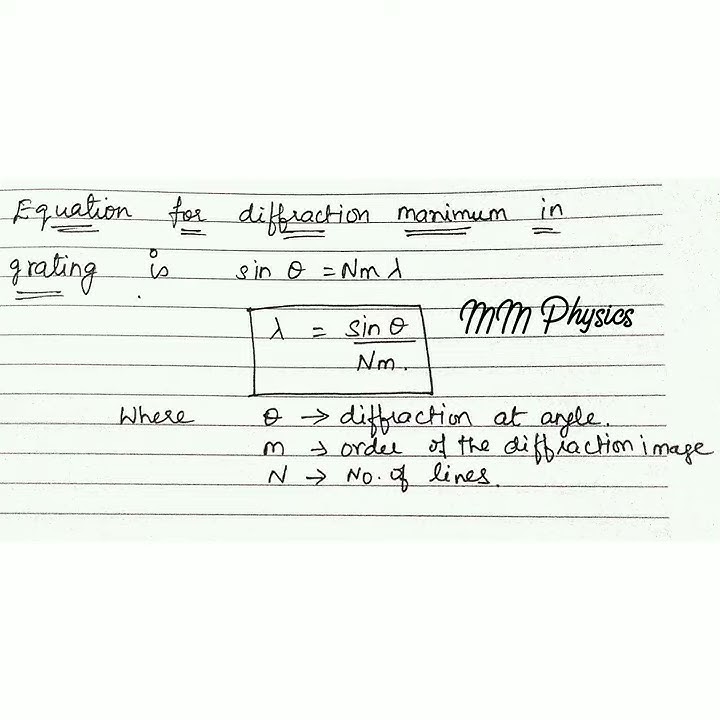 Equation for diffraction maximum in
grating is sin θ = Nm λ
λ = sin θ / Nm.
MM Physics
Where θ → diffraction at angle.
m → order of the diffraction image
N → No. of lines.